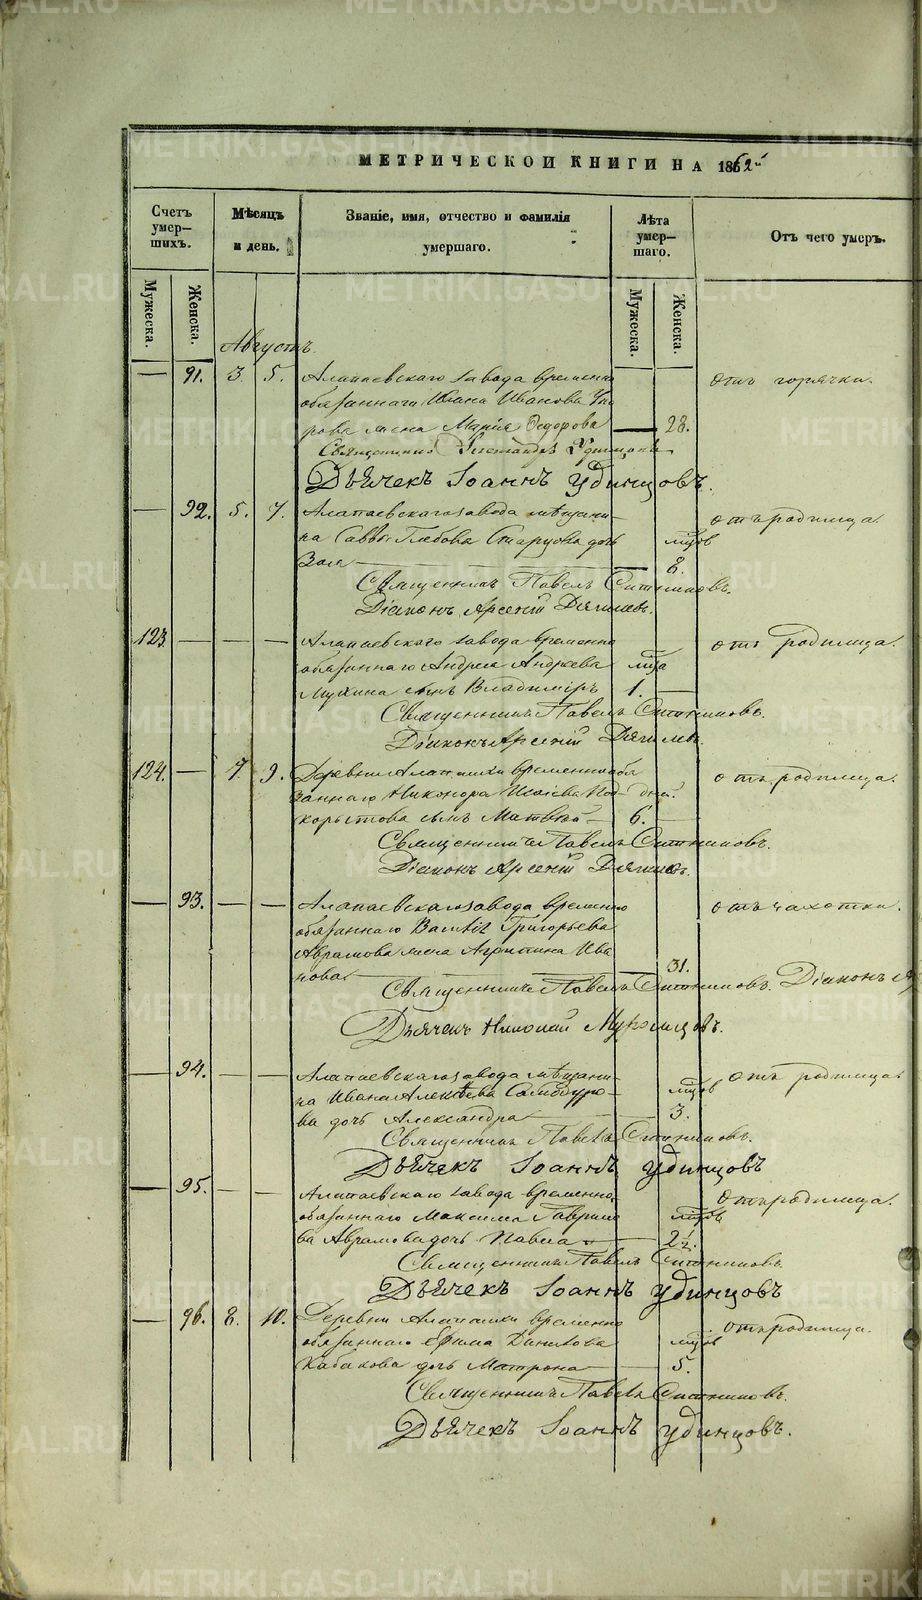 МЕТРИЧЕСКОЙ КНИГИ НА 1862й
Счетъ умер—шихъ.
Мѣсяцъ и день.
Званіе, имя, отчество и фамилія умершаго.
Лѣта умер—шаго.
Отъ чего умеръ.
Мужеска. Женска. Мужеска. Женска.
Августъ.
— 91. 3 5. Алапаевскаго завода временно отъ горячки.
обязаннаго Ивана Иванова
жена Марія Ѳедорова — 28.
Священникъ Александръ Удинцовъ
Дьячекъ Іоаннъ Удинцовъ.
— 92. 5. 7. Алапаевскаго завода мѣщани— отъ родимца.
на Саввы Глебова Старцова дочь мцов
Зоя — 8.
Священникъ Павелъ Ситниковъ.
Діаконъ Арсеній Дягилевъ.
123. — — — Алапаевскаго завода временно отъ родимца.
обязаннаго Андрея Андреева мца
Мухина сынъ Владиміръ 1. —
Священникъ Павелъ Ситниковъ.
Діаконъ Арсеній Дягилевъ.
124. — 7. 9. Деревни Алапашки временно обя отъ родимца.
заннаго Никонора Исаіева Под дней.
корытова сынъ Матвѣй — 6. —
Священникъ Павелъ Ситниковъ.
Діаконъ Арсеній Дягилевъ.
— 93. — — Алапаевскаго завода временно отъ чахотки.
обязаннаго Василія Григорьева
Аврамова жена Агрипина Ива
нова — 31.
Священникъ Павелъ Ситниковъ. Діаконъ
Дьячекъ Николай Муромцовъ.
— 94. — — Алапаевскаго завода мѣщани— отъ родимца.
на Ивана Алексѣева мцов
ва дочь Александра — 3.
Священникъ Павелъ Ситниковъ.
Дьячекъ Іоаннъ Удинцовъ
— 95. — — Алапаевскаго завода временно отъ родимца.
обязаннаго Максима Гаврило мцов
ва Аврамова дочь Павла — 2½.
Священникъ Павелъ Ситниковъ.
Дьячекъ Іоаннъ Удинцовъ
— 96. 8. 10. Деревни Алапашки временно отъ родимца.
обязаннаго Ефима Данилова мцов
Кабакова дочь Матрона — 5.
Священникъ Павелъ Ситниковъ.
Дьячекъ Іоаннъ Удинцовъ.
METRIKI.GASO-URAL.RU